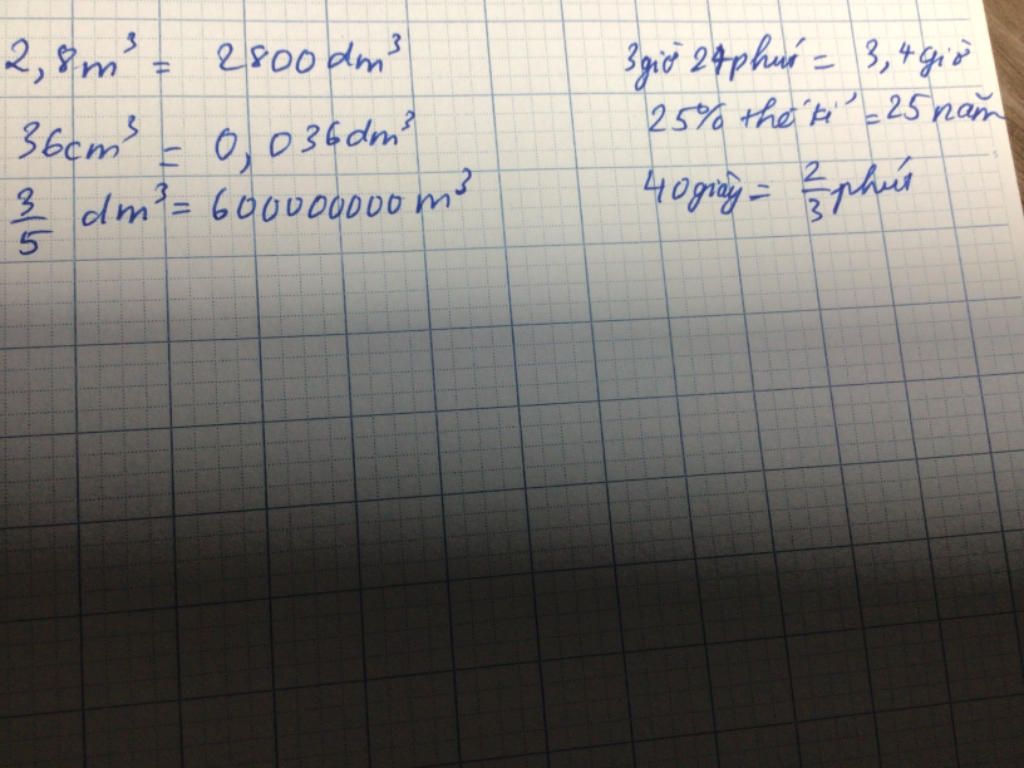 2,8m³ = 2800 dm³
36cm³ = 0,036dm³
3/5 dm³ = 600000000 m³
3giờ 24phút = 3,4giờ
25% thế kỉ = 25 năm
40giây = 2/3 phút